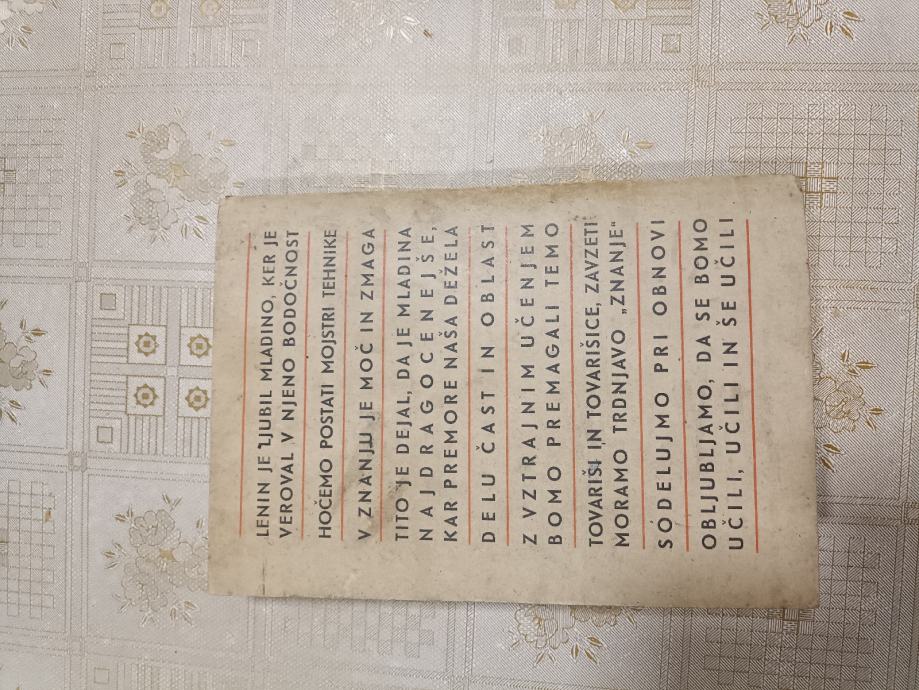 LENIN JE LJUBIL MLADINO, KER JE
VEROVAL V NJENO BODOČNOST
HOČEMO POSTATI MOJSTRI TEHNIKE
V ZNANJU JE MOČ IN ZMAGA
TITO JE DEJAL, DA JE MLADINA
NAJDRAGOCENEJŠE,
KAR PREMORE NAŠA DEŽELA
DELU ČAST IN OBLAST
Z VZTRAJNIM UČENJEM
BOMO PREMAGALI TEMO
TOVARIŠI IN TOVARIŠICE, ZAVZETI
MORAMO TRDNJAVO „ZNANJE“
SODELUJMO PRI OBNOVI
OBLJUBLJAMO, DA SE BOMO
UČILI, UČILI IN ŠE UČILI